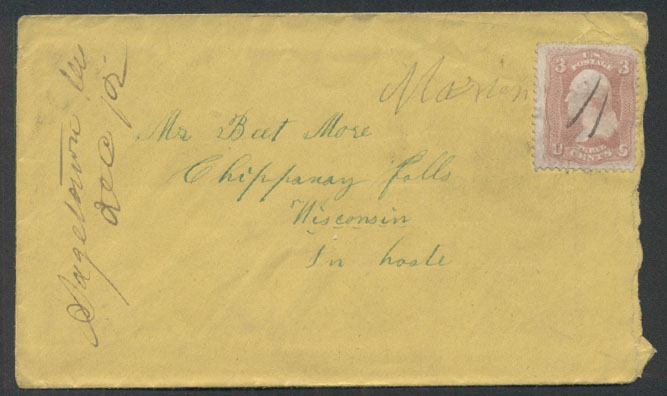 Sagetown Ill
Dec 12
Marion
Mr Bert More
Chippanay falls
Wisconsin
In haste
U.S.
POSTAGE
3 3
THREE
U CENTS S